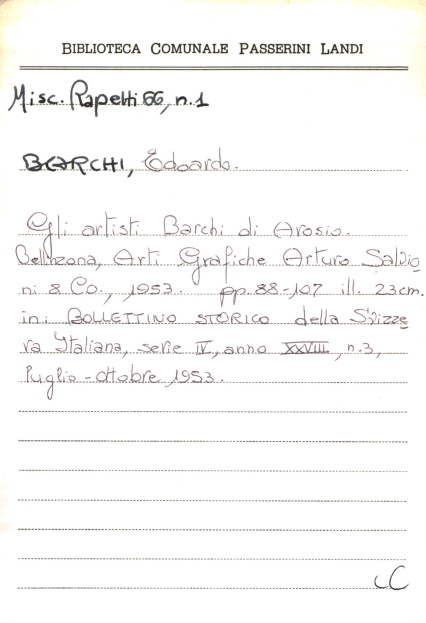 BIBLIOTECA COMUNALE PASSERINI LANDI
Misc. Rapetti 66, n.1
BARCHI, Edoardo.
Gli artisti Barchi di Arosio.
Bellinzona, Arti Grafiche Arturo Salvio
ni & Co., 1953. pp. 88-107 ill. 23cm.
in: BOLLETTINO STORICO della Svizze
ra Italiana, serie IV, anno XXVIII, n.3,
luglio-ottobre 1953.